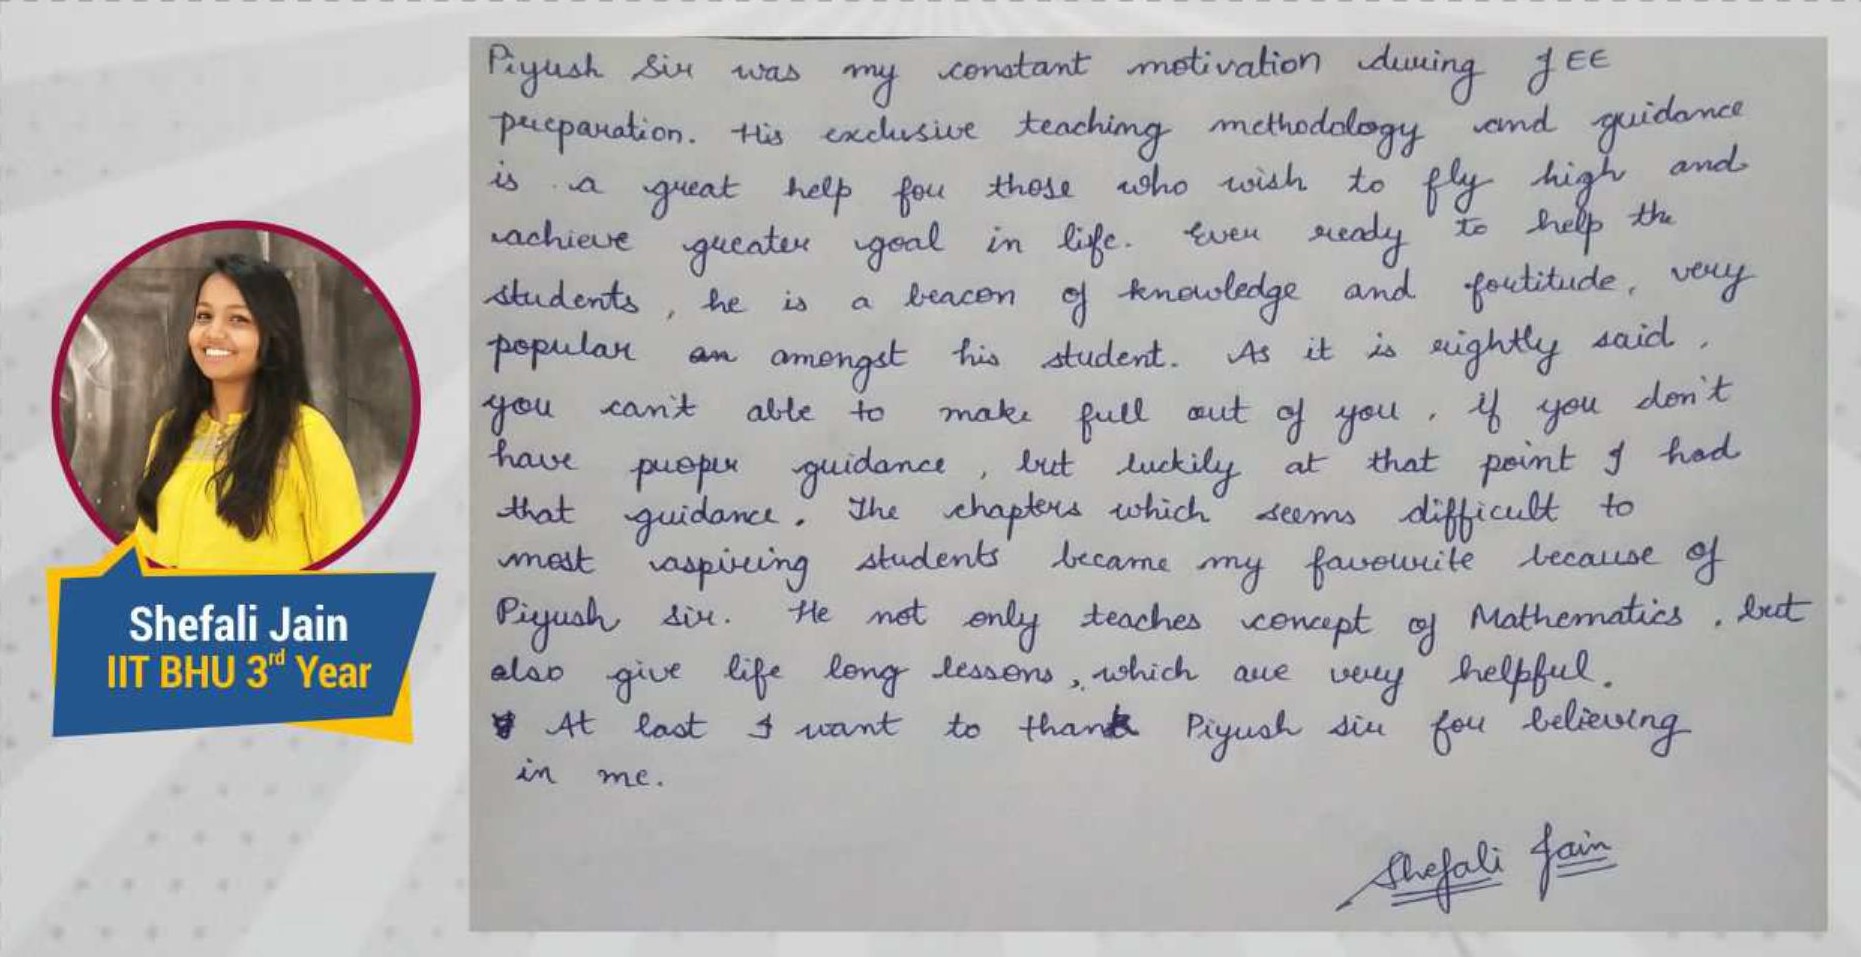 Piyush Sir was my constant motivation during JEE
preparation. His exclusive teaching methodology and guidance
is a great help for those who wish to fly high and
achieve greater goal in life. Ever ready to help the
students, he is a beacon of knowledge and fortitude, very
popular an amongst his student. As it is rightly said,
you can't able to make full out of you, if you don't
have proper guidance, but luckily at that point I had
that guidance. The chapters which seems difficult to
most aspiring students became my favourite because of
Piyush sir. He not only teaches concept of Mathematics, but
also give life long lessons, which are very helpful.
At last I want to thank Piyush sir for believing
in me.
Shefali Jain
Shefali Jain
IIT BHU 3rd Year